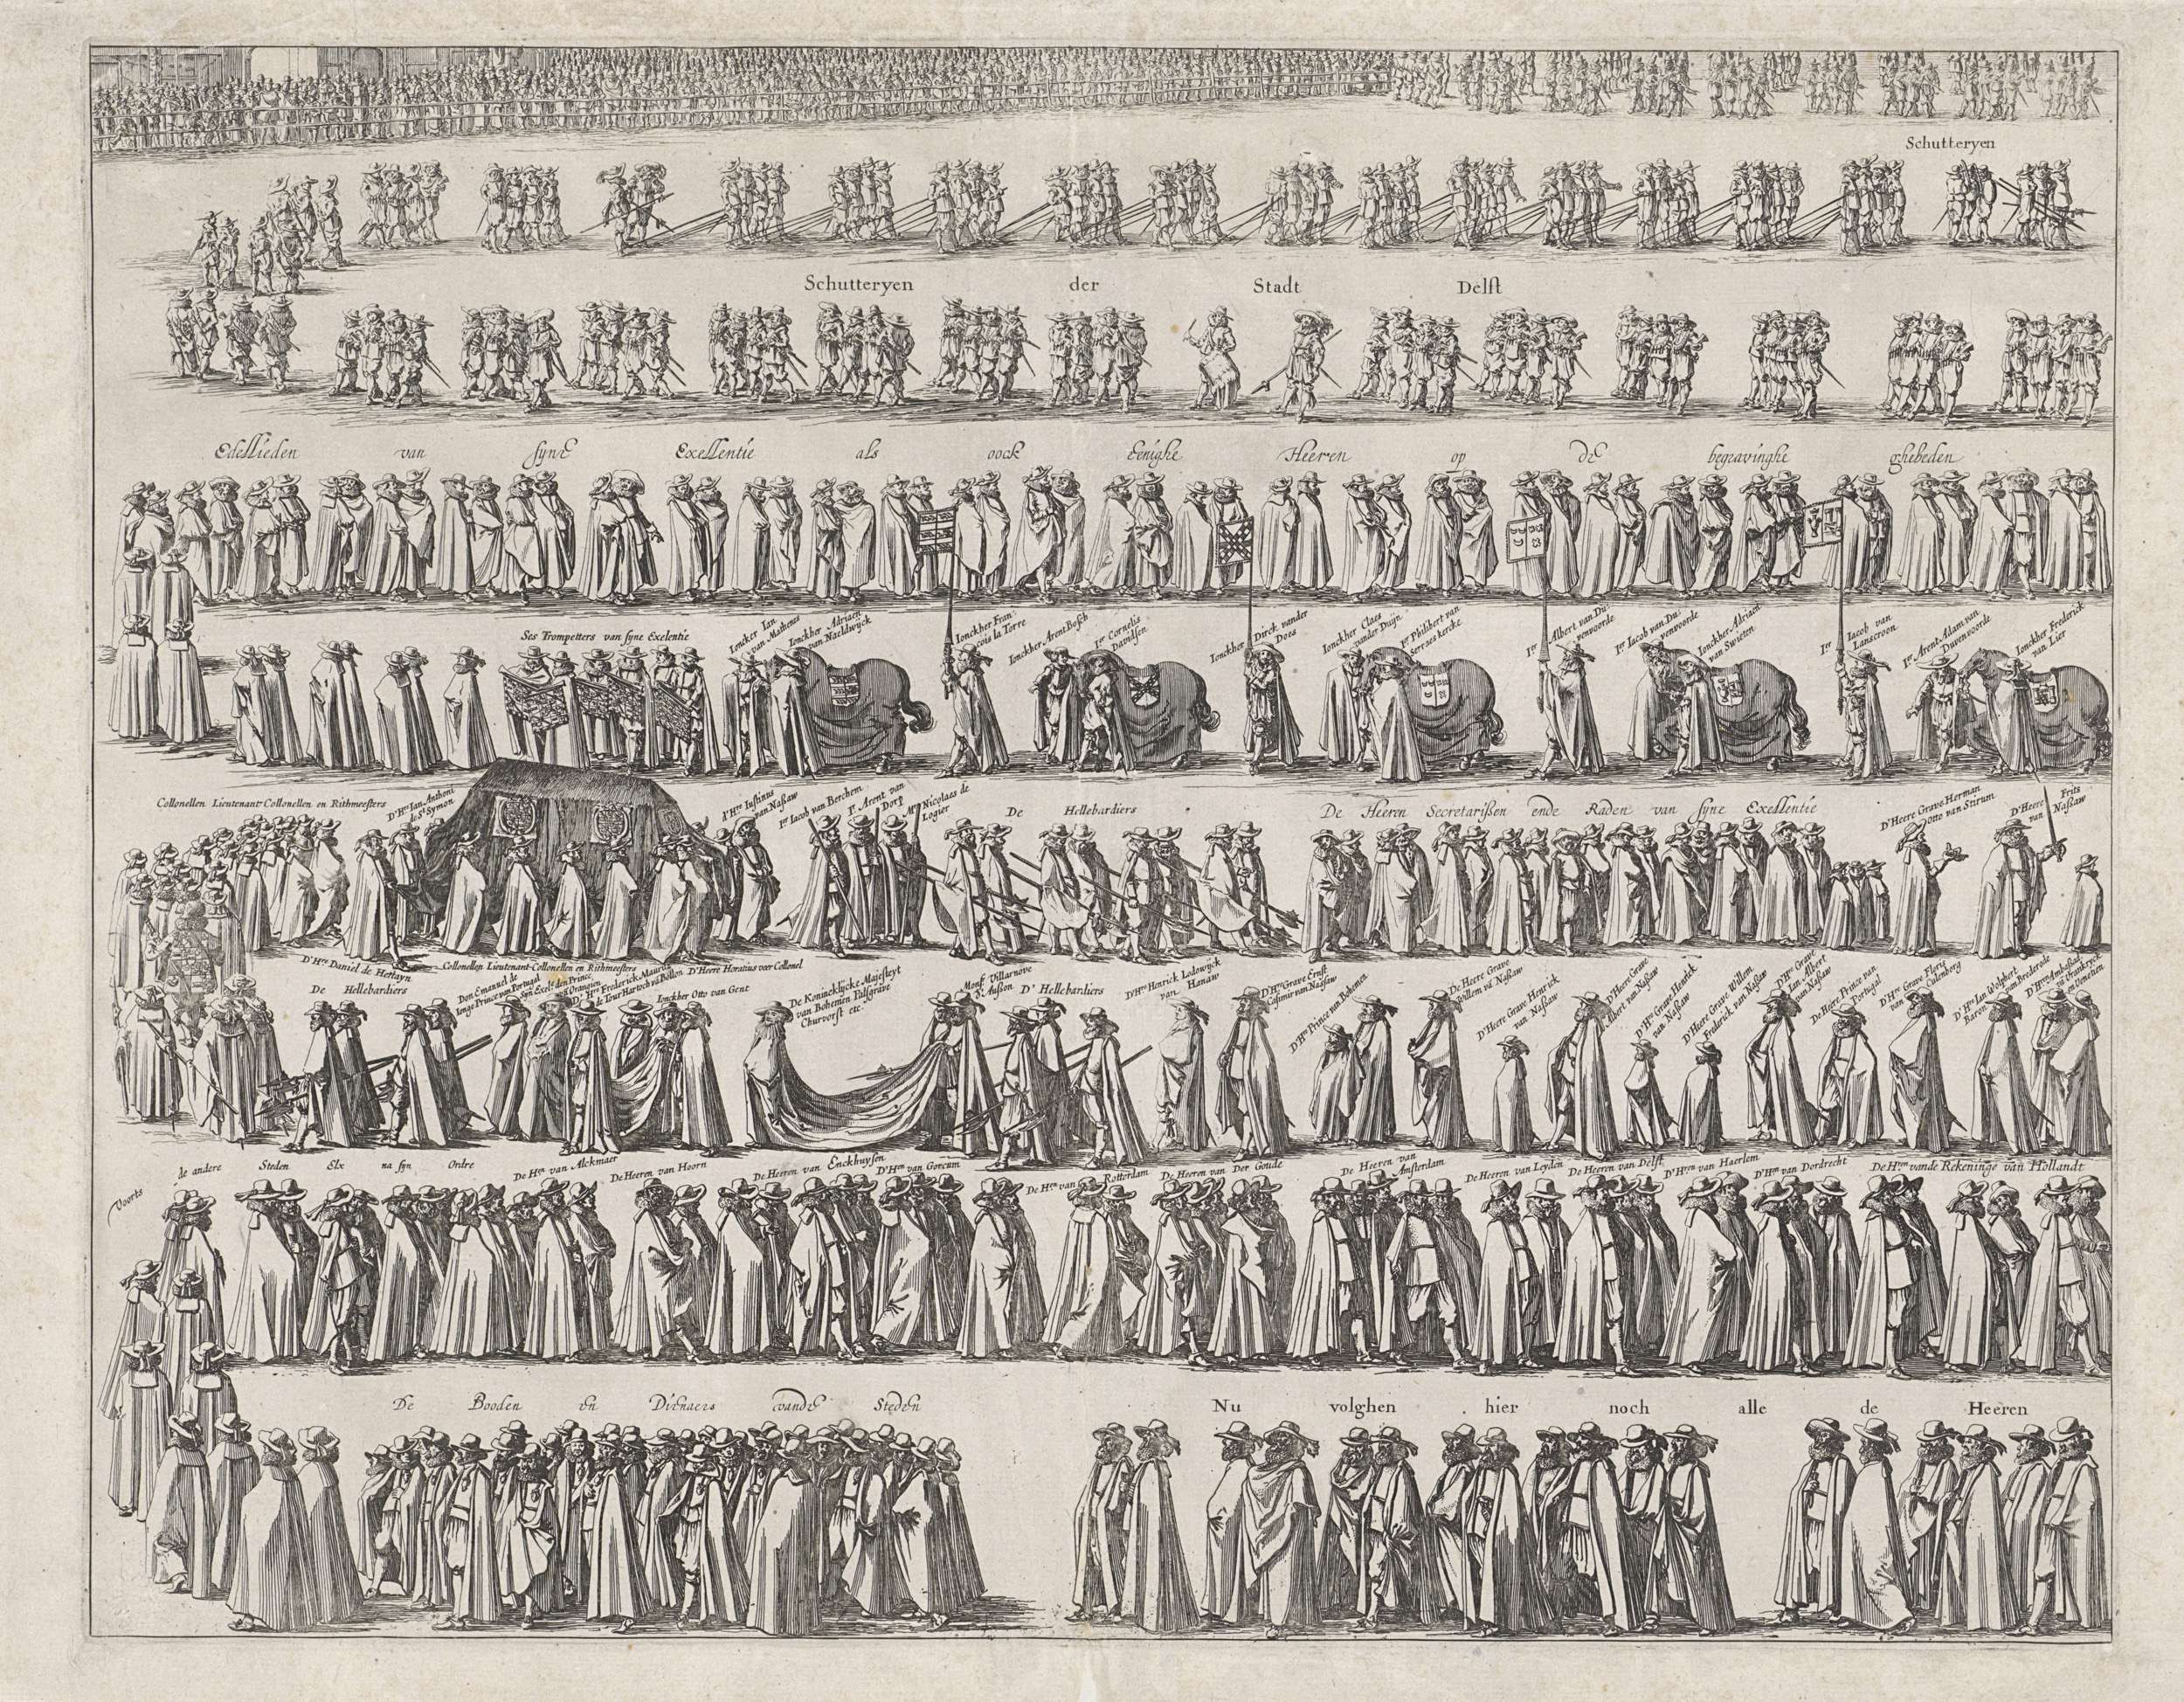 Schutteryen
Schutteryen der Stadt Delft
Edellieden van syne Exellentie als oock eenighe Heeren op de begravinghe ghebeden
Ses Trompetters van syne Exelentie
Joncker Jan
van Mathenes
Jonckher Adriaen
van Naeldwyck
Jonckher Fran-
cois la Torre
Jonckher Arent Bosch
Jor Cornelis
Davidsen
Jonckher Dirck vander
Does
Jonckher Claes
vander Duijn
Jor Philibert van
sereskercke
Jor Albert van Du-
venvoorde
Jor Jacob van Du-
venvoorde
Jonckher Adriaen
van Swieten
Jor Jacob van
Lanscroon
Jor Arent Adam van
Duvenvoorde
Jonckher Frederick
van Lier
Collonellen Lieutenant-Collonellen en Rithmeesters
D'Hre Jan Anthoni
de St Symon
d'Hre Justinus
van Naßaw
Jor Jacob van Berchem
Jr Arent van
Dorp
Mr Nicolaes de
Logier
De Hellebardiers
De Heeren Secretarißen ende Raden van syne Exellentie
D'Heere Grave Herman
Otto van Stirum
D'Heere Frits
van Naßaw
D'Hre Daniel de Hertayn
Collonellen Lieutenant-Collonellen en Rithmeesters
De Hellebardiers
Don Emanuel de
Ionge Prince van Portugal
Syn Exele den Prince
van Orangien
D'Hre Frederick Mauritz
de la Tour Hartoch vā Bollon
D'Heere Horatius veer Collonel
Jonckher Otto van Gent
De Konincklycke Majesteyt
van Bohemen Paltsgrave
Churvorst etc.
Monsr Villarnove
St Außon
D'Hellebardiers
D'Hre Henrick Lodowijck
van Hanaw
D'Hre Grave Ernst
Casimir van Naßaw
D'Hre Prince van Bohemen
De Heere Grave
Willem vā Naßaw
D'Heere Grave Henrick
van Naßaw
D'Heere Grave
Albert van Naßaw
D'Hre Grave Henrick
van Naßaw
D'Heere Grave Willem
Frederick van Naßaw
D'Hre Grave
Jan Albert
van Naßaw
De Heere Prince van
Portugal
D'Hre Grave Floris
van Culenborg
D'Hre Jan Wolphert
Baron van Brederode
D'Hre Ambaßad.
va Vranckryck
en Venetien
Voorts de andere Steden Elx na syn Ordre
De Hren van Alckmaer
De Heeren van Hoorn
De Heeren van Enckhuysen
D'Hren van Gorcum
De Hren van Rotterdam
De Heeren van Der Goude
De Heeren van
Amsterdam
De Heeren van Leyden
De Heeren van Delft
D'Hren van Haerlem
D'Hren van Dordrecht
De Hren vande Rekeninge van Hollandt
De Booden en Dienaers vande Steden
Nu volghen hier noch alle de Heeren